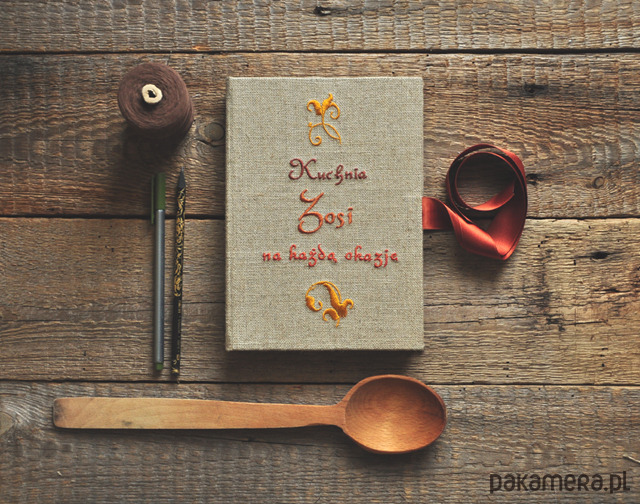 Kuchnia
Zosi
na każdą okazję
pakamera.pl